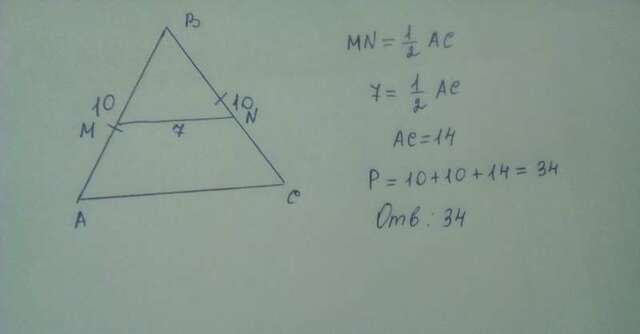 B
10
10
M
N
7
A
C
MN = 1/2 AC
7 = 1/2 AC
AC = 14
P = 10 + 10 + 14 = 34
Отв: 34